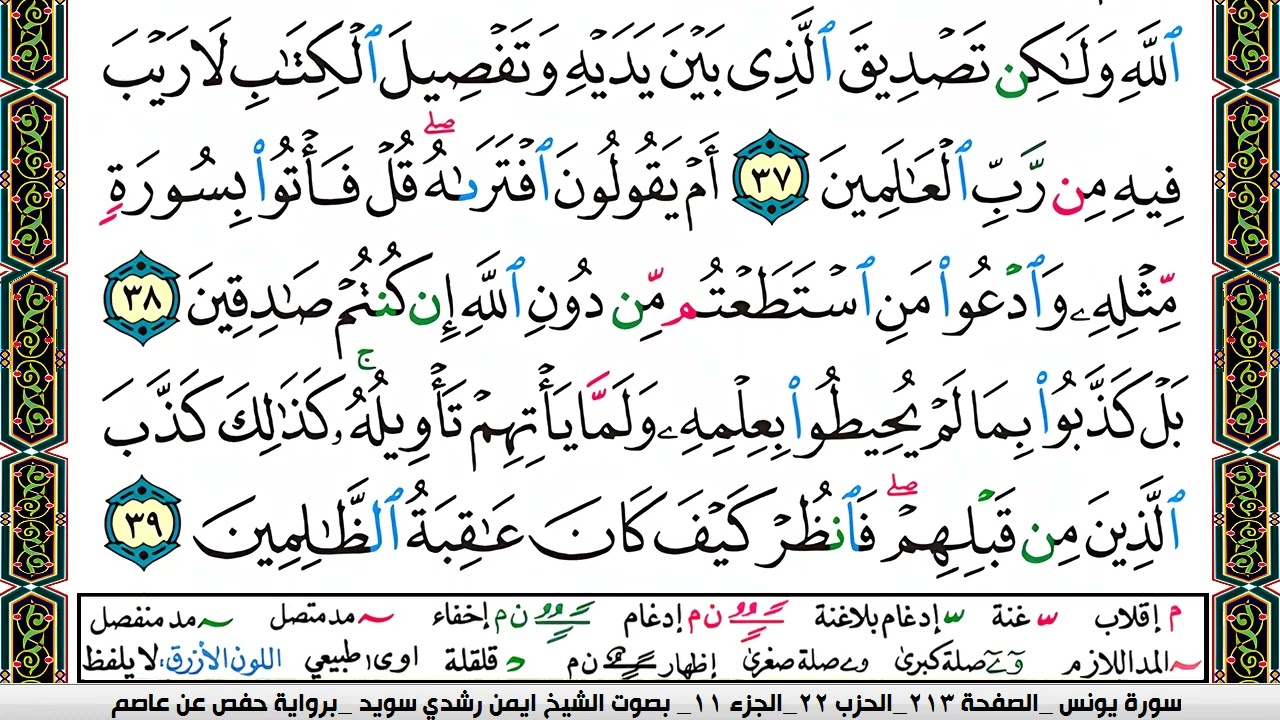 ٱللَّهِ وَلَـٰكِن تَصْدِيقَ ٱلَّذِى بَيْنَ يَدَيْهِ وَتَفْصِيلَ ٱلْكِتَـٰبِ لَا رَيْبَ
فِيهِ مِن رَّبِّ ٱلْعَـٰلَمِينَ ٣٧ أَمْ يَقُولُونَ ٱفْتَرَىٰهُ ۖ قُلْ فَأْتُوا۟ بِسُورَةٍ
مِّثْلِهِۦ وَٱدْعُوا۟ مَنِ ٱسْتَطَعْتُم مِّن دُونِ ٱللَّهِ إِن كُنتُمْ صَـٰدِقِينَ ٣٨
بَلْ كَذَّبُوا۟ بِمَا لَمْ يُحِيطُوا۟ بِعِلْمِهِۦ وَلَمَّا يَأْتِهِمْ تَأْوِيلُهُۥ ۚ كَذَٰلِكَ كَذَّبَ
ٱلَّذِينَ مِن قَبْلِهِمْ ۖ فَٱنظُرْ كَيْفَ كَانَ عَـٰقِبَةُ ٱلظَّـٰلِمِينَ ٣٩
م إقلاب غنة إدغام بلاغنة ن م إدغام ن م إخفاء مد متصل مد منفصل
المد اللازم صلة كبرى وے صلة صغرى إظهار ن م قلقلة اوى طبيعي اللون الأزرق، لا يلفظ
سورة يونس _الصفحة ٢١٣_الحزب ٢٢_الجزء ١١_ بصوت الشيخ ايمن رشدي سويد _برواية حفص عن عاصم